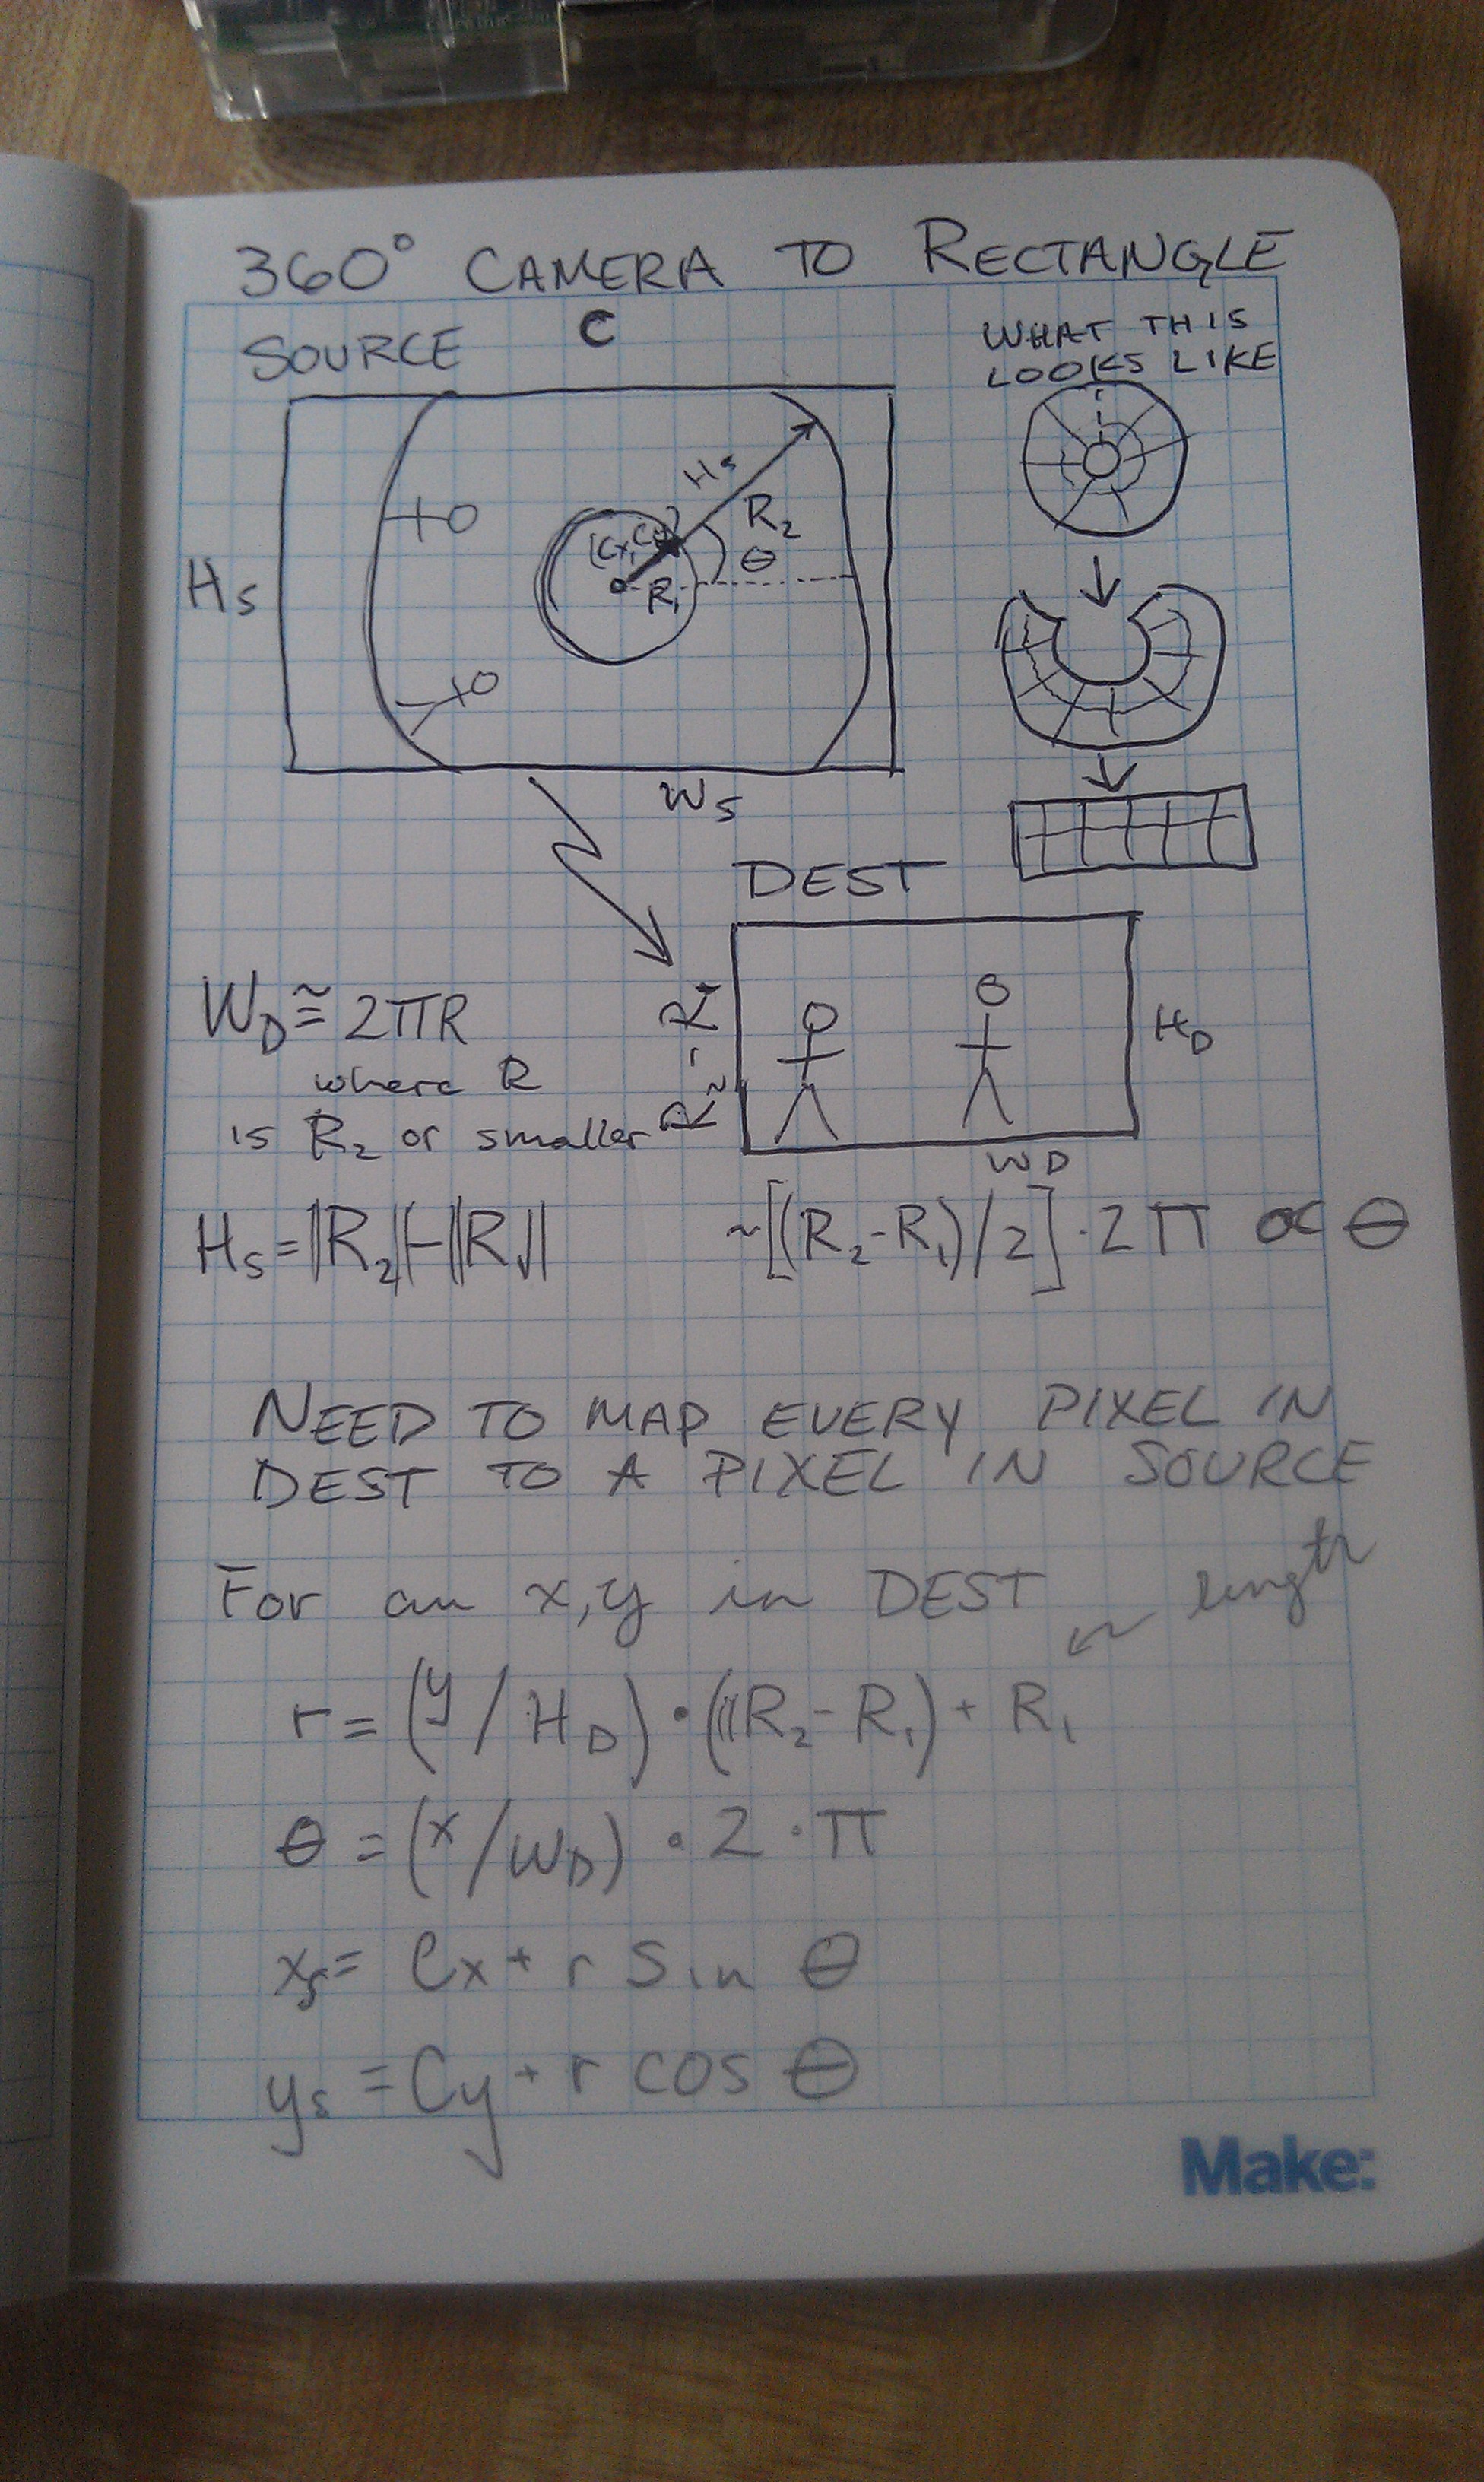 360° CAMERA TO RECTANGLE
SOURCE C
WHAT THIS
LOOKS LIKE
Hs
Hs
R₂
θ
(Cx, Cy)
R₁
Ws
DEST
W_D ≅ 2πR
where R
is R₂ or smaller
R₂ - R₁
H_D
WD
Hs = ||R₂|-||R₁||
~[(R₂-R₁)/2]·2π ∝ θ
NEED TO MAP EVERY PIXEL IN
DEST TO A PIXEL IN SOURCE
For an x,y in DEST
length
r = (y/H_D)·(||R₂-R₁)+R₁
θ = (x/W_D)·2·π
xs = Cx + r sin θ
ys = Cy + r cos θ
Make: